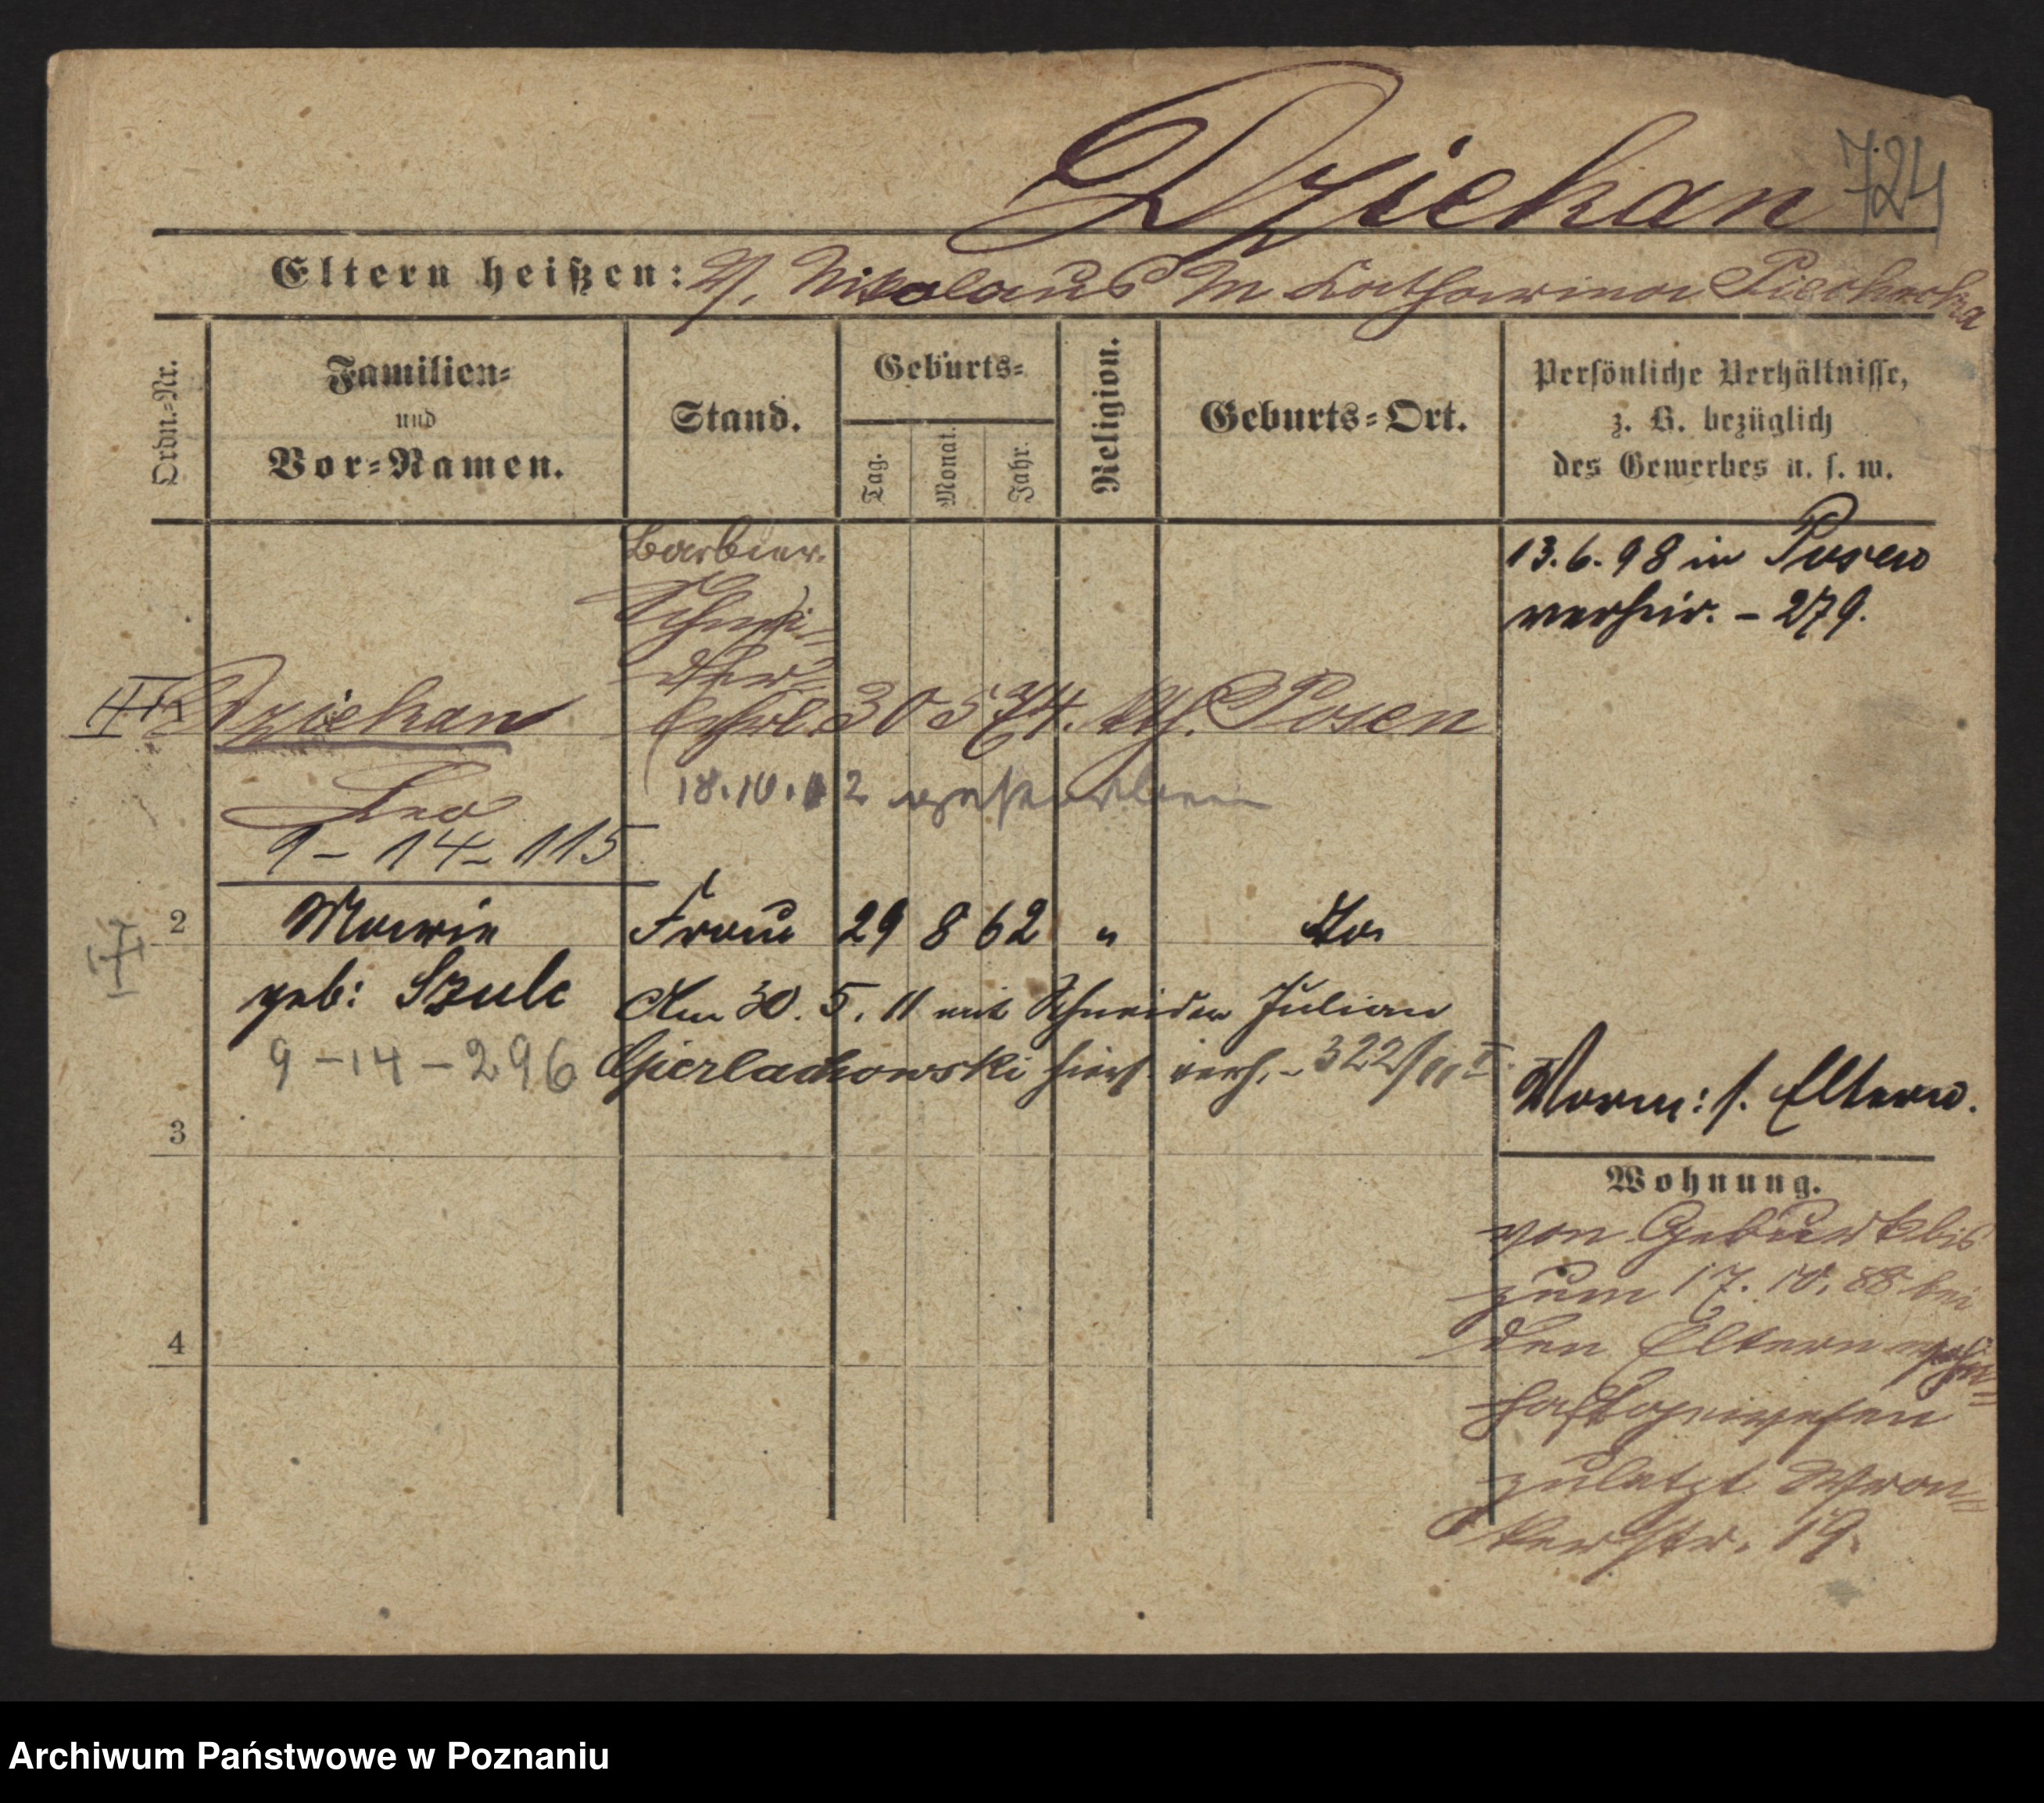 Dziekan 724
Eltern heißen: V. Nikolaus M Katharina Piechocka
Ordn.-Nr.
Familien-
und
Vor-Namen.
Stand.
Geburts-
Tag.
Monat.
Jahr.
Religion.
Geburts-Ort.
Persönliche Verhältnisse,
z. B. bezüglich
des Gewerbes u. s. w.
Barbier.
13.6.98 in Posen
verheir. - 279.
Dziekan
30 5 74. kth. Posen
Leo
18.10.12 verstorben
9 - 14 - 115
2 Marie Frau 29 8 62 " do
geb: Szulc Am 30. 5. 11 mit Schneider Julian
9 - 14 - 296 Gierlachowski hier verh. - 322/11 I
Vorm: s. Eltern.
3
Wohnung.
von Geburt bis
zum 17. 10. 88 bei
4
den Eltern wohn-
haft gewesen
zuletzt Wron-
kerstr. 19.
Archiwum Państwowe w Poznaniu